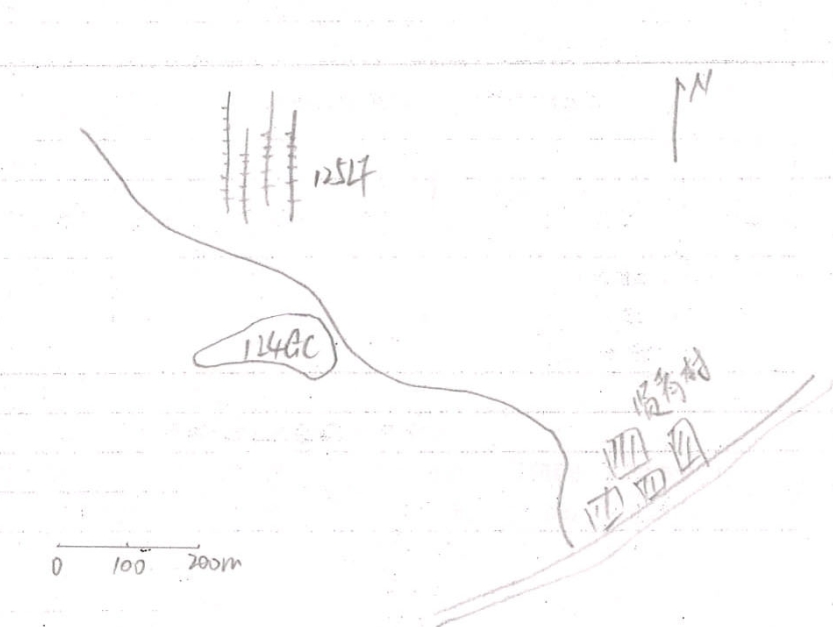 N
125LF
124GC
村
0 100 200m